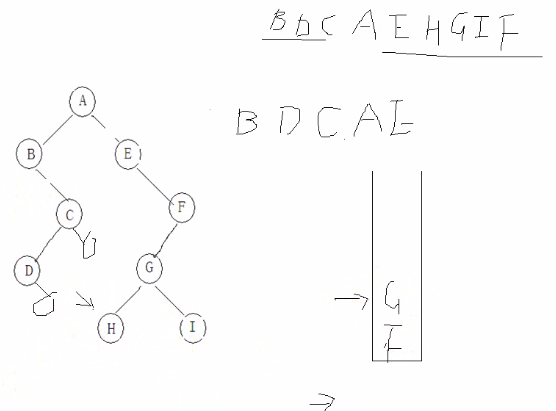 BDCAEHGIF
BDCAE
A
B E
C F
D G
H I
G
F